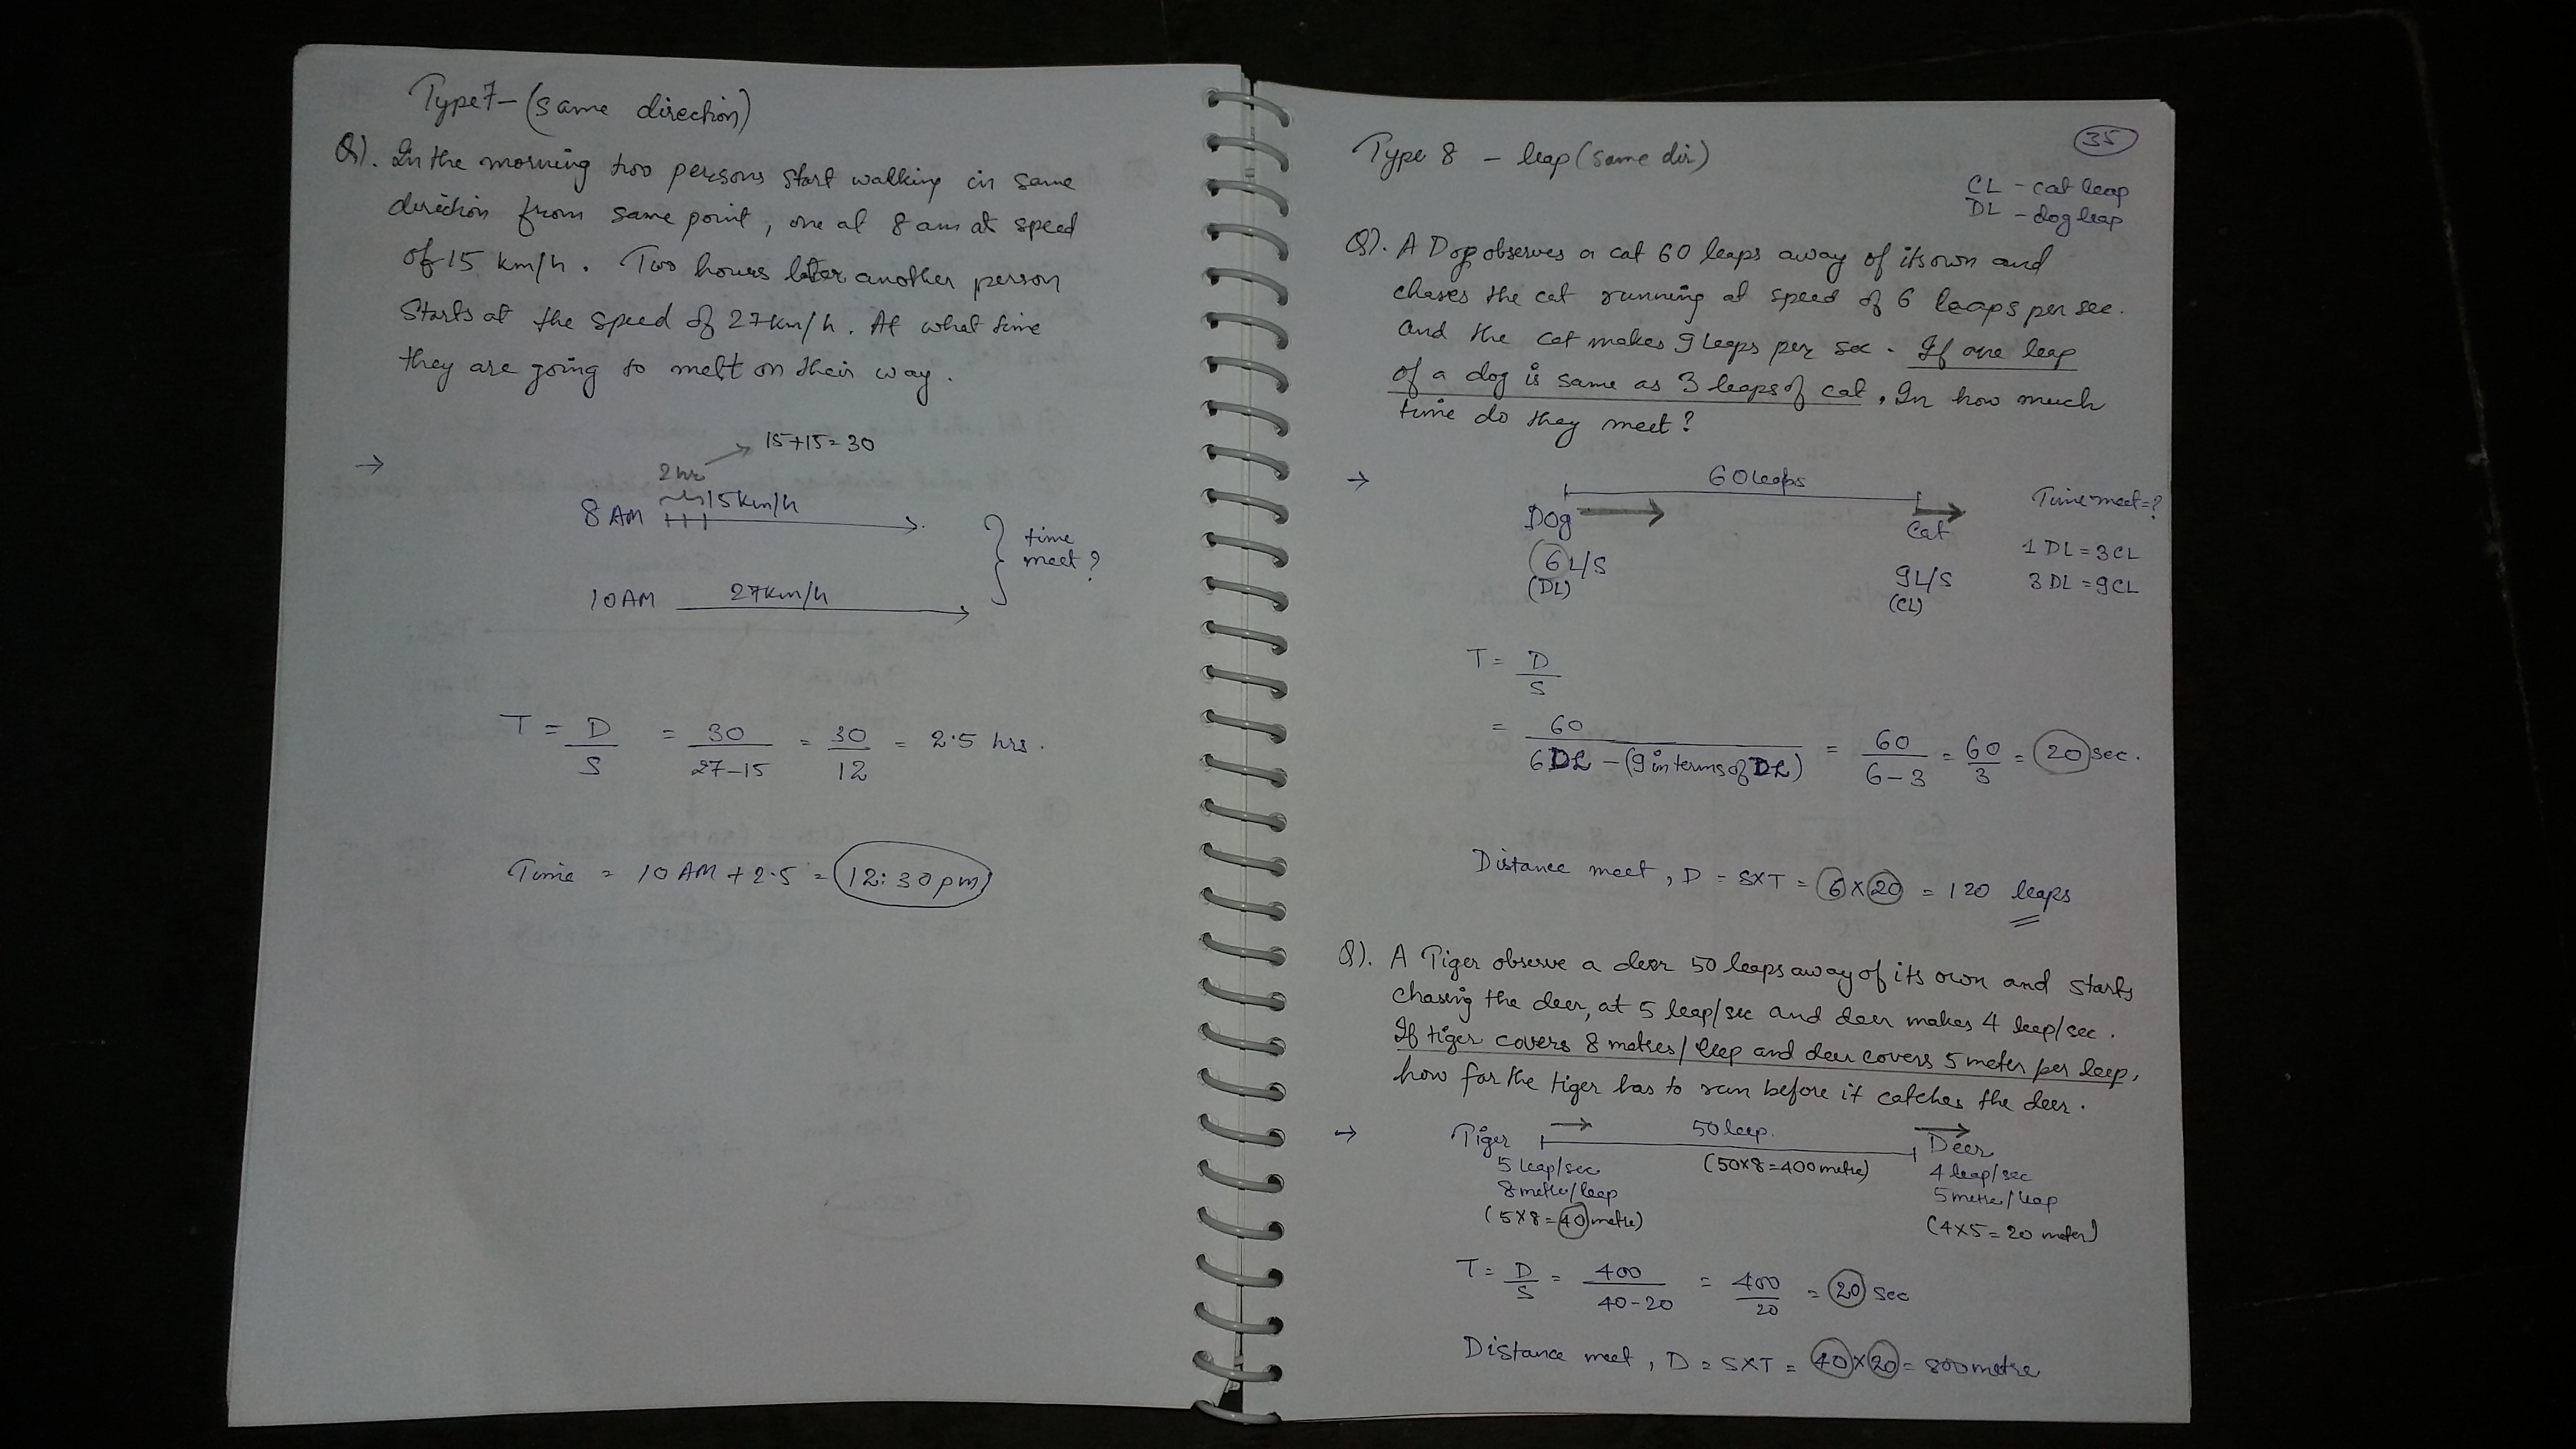 Type 7 - (same direction)
Q). In the morning two persons start walking in same
direction from same point, one at 8 am at speed
of 15 km/h. Two hours later another person
starts at the speed of 27km/h. At what time
they are going to meet on their way.
→
15+15=30
2 hr
8 AM 15km/h
10AM 27km/h
time
meet?
T = D/S = 30/27-15 = 30/12 = 2.5 hrs.
Time = 10 AM + 2.5 = 12:30pm
35
Type 8 - leap (same dir)
CL - cat leap
DL - dog leap
Q). A Dog observes a cat 60 leaps away of its own and
chases the cat running at speed of 6 leaps per sec.
and the cat makes 9 leaps per sec. If one leap
of a dog is same as 3 leaps of cat, In how much
time do they meet?
→
60 leaps
Dog Cat
6 L/S
(DL)
9L/S
(CL)
Time meet=?
1 DL = 3CL
3 DL = 9CL
T = D/S
= 60/6DL - (9 in terms of DL) = 60/6-3 = 60/3 = 20 sec.
Distance meet, D = SXT = 6 x 20 = 120 leaps
Q). A Tiger observe a deer 50 leaps away of its own and starts
chasing the deer, at 5 leap/sec and deer makes 4 leep/sec.
If tiger covers 8 metres/leep and deer covers 5 meter per leep,
how far the tiger has to run before it catches the deer.
→ Tiger 50 leep. Deer
5 leap/sec (50x8=400 metre) 4 leap/sec
8 metre/leap 5 metre/leap
(5x8=40 metre) (4x5=20 meter)
T = D/S = 400/40-20 = 400/20 = 20 sec
Distance meet, D = SXT = 40 x 20 = 800 metre